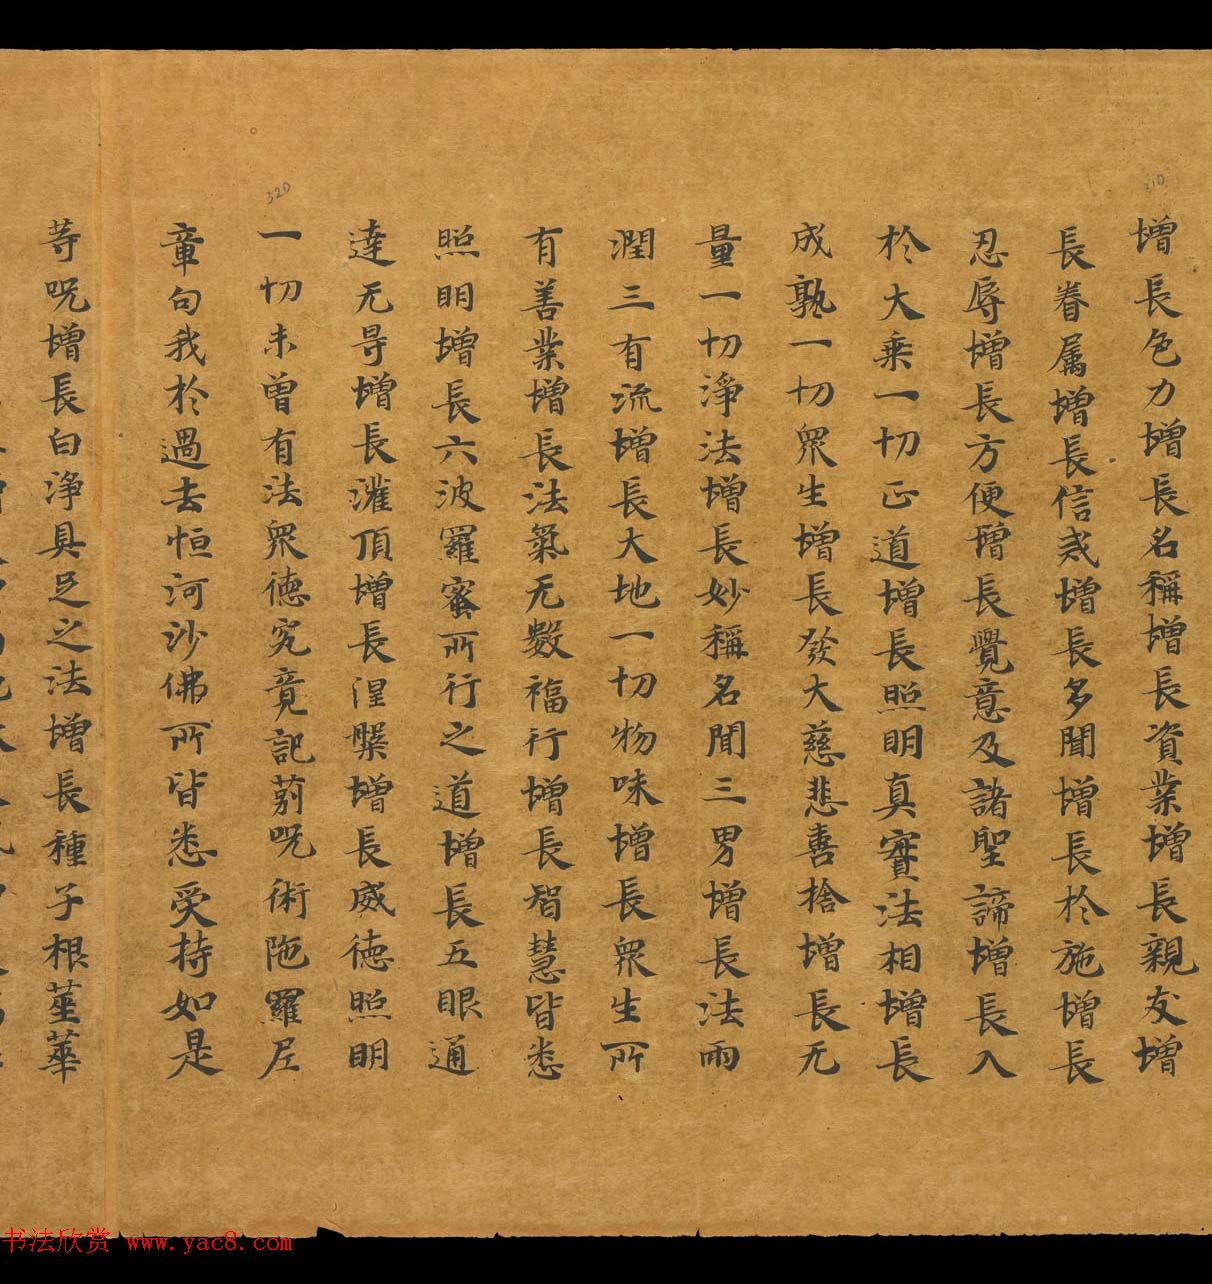 310
增長色力增長名稱增長資業增長親友增
長眷属增長信戒增長多聞增長於施增長
忍辱增長方便增長覺意及諸聖諦增長入
於大乗一切正道增長照明真寶法相增長
成熟一切眾生增長發大慈悲喜捨增長无
量一切淨法增長妙稱名聞三界增長法雨
潤三有流增長大地一切物味增長眾生所
有善業增長法氣无數福行增長智慧皆悉
照明增長六波羅蜜所行之道增長五眼通
達无㝵增長灌頂增長涅槃增長威德照明
320
一切未曾有法眾德究竟記莂呪術陁羅尼
章句我於過去恒河沙佛所皆悉受持如是
等呪增長白淨具足之法增長種子根莖華
书法欣赏 www.yac8.com